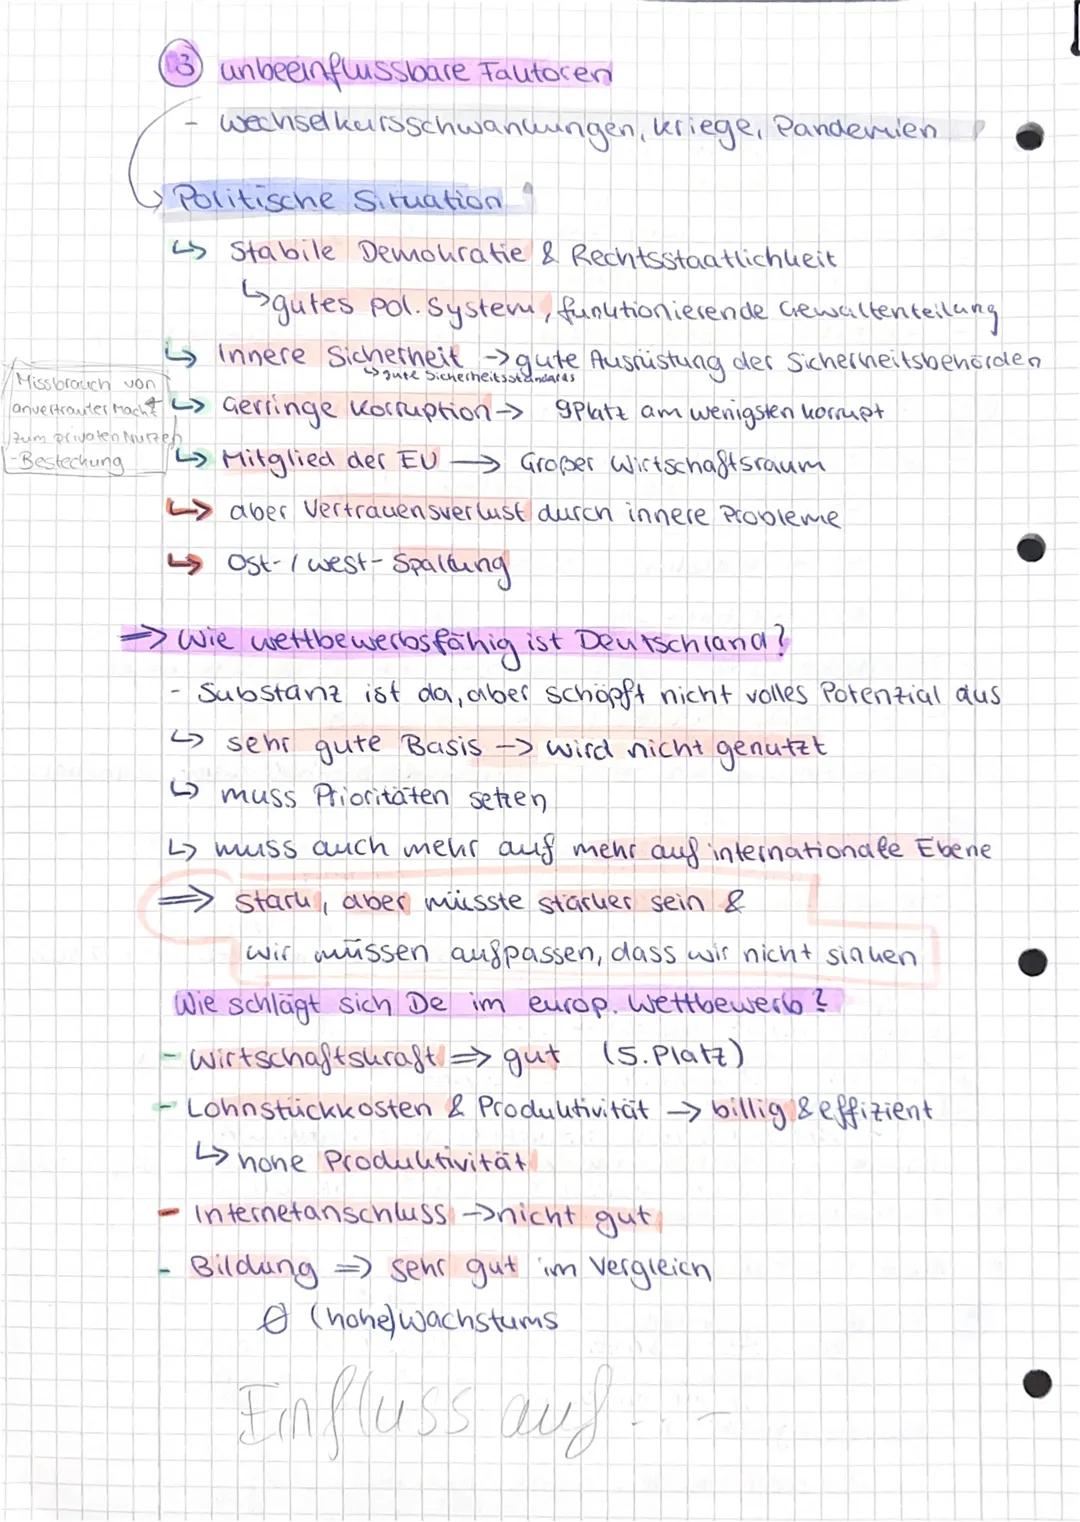 3 unbeeinflussbare Faktoren
- Wechselkursschwankungen, Kriege, Pandemien
↳ Politische Situation
↳ Stabile Demokratie & Rechtsstaatlichkeit
↳ gutes pol. System, funktionierende Gewaltenteilung
↳ Innere Sicherheit -> gute Ausrüstung der Sicherheitsbehörden
↳ gute Sicherheitsstandards
Missbrauch von
anvertrauter Macht
zum privaten Nutzen
- Bestechung
↳ Gerringe Korruption -> 9Platz am wenigsten korrupt
↳ Mitglied der EU -> Großer Wirtschaftsraum
↳ aber Vertrauensverlust durch innere Probleme
↳ Ost-/West-Spaltung
=> Wie wettbewerbsfähig ist Deutschland?
- Substanz ist da, aber schöpft nicht volles Potenzial aus
↳ sehr gute Basis -> wird nicht genutzt
↳ muss Prioritäten setzen
↳ muss auch mehr auf mehr auf internationale Ebene
=> stark, aber müsste stärker sein &
wir müssen aufpassen, dass wir nicht sinken
Wie schlägt sich De im europ. Wettbewerb?
- Wirtschaftskraft => gut (5.Platz)
- Lohnstückkosten & Produktivität -> billig & effizient
↳ hohe Produktivität
- Internetanschluss -> nicht gut
- Bildung => sehr gut im Vergleich
Ø (hohe) Wachstums
Einfluss auf ...-